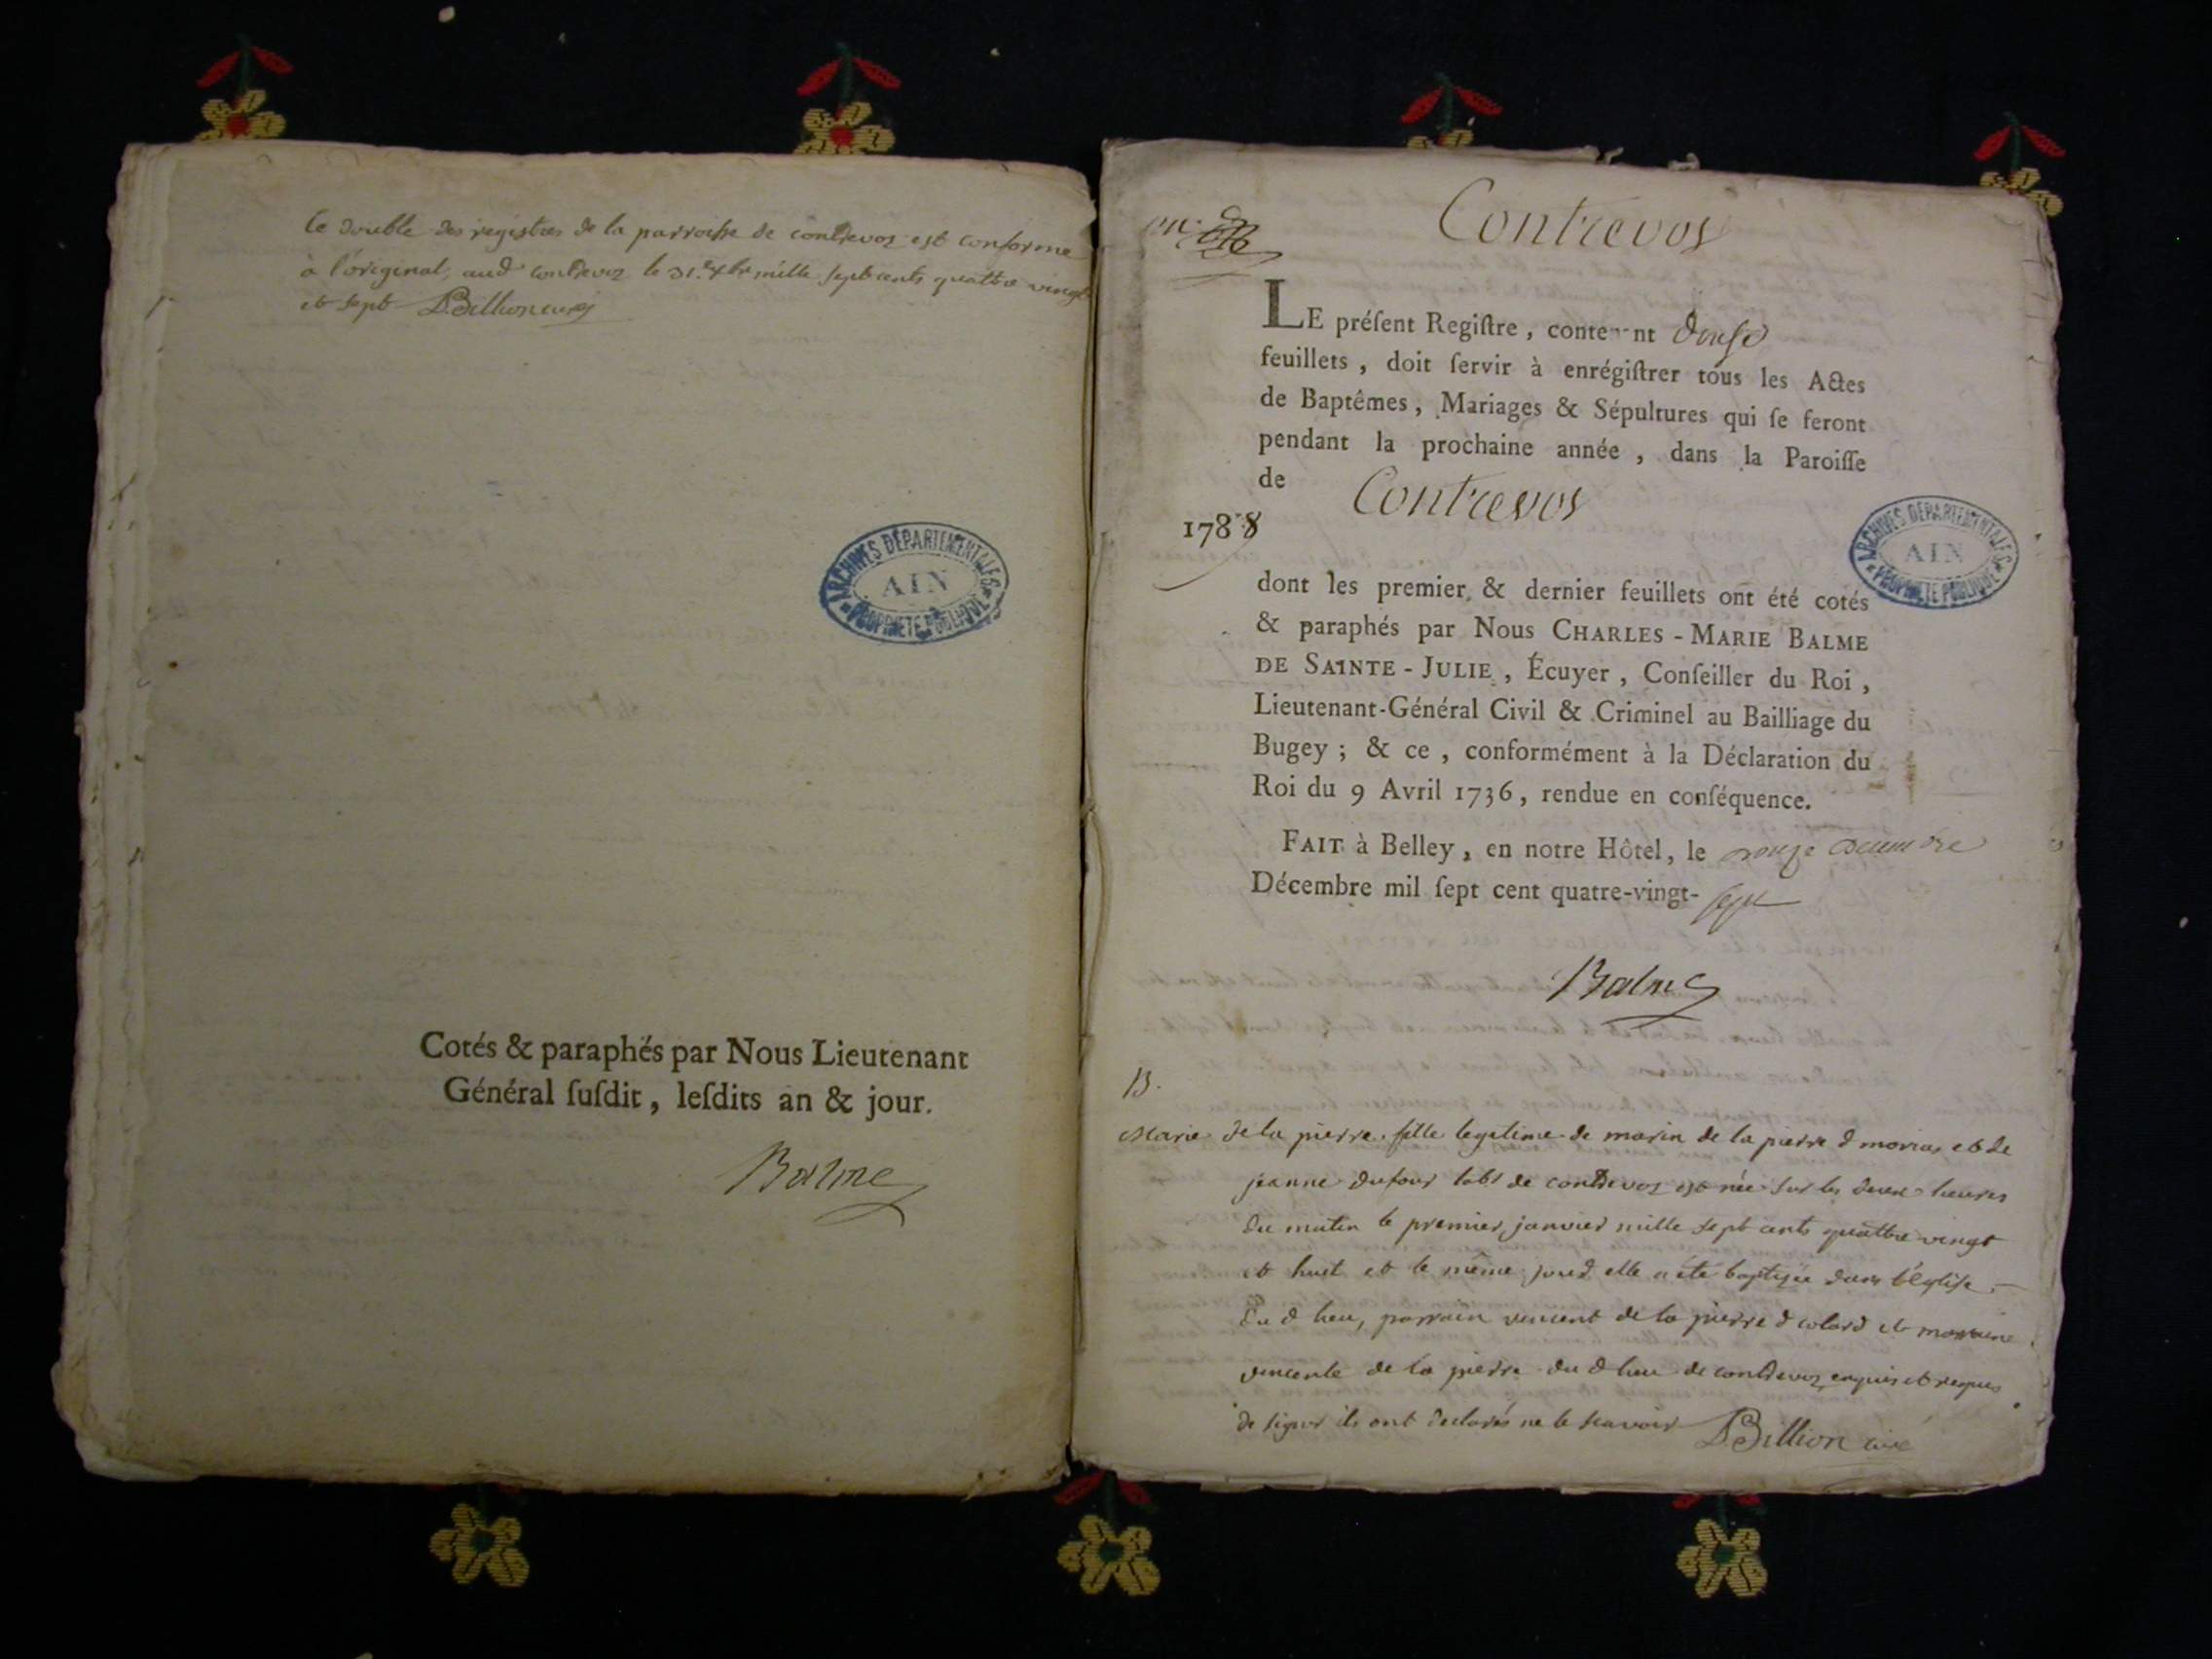 Ce double des registres de la parroisse de contrevoz est conforme
à l'original, aud contrevoz le 31. Xbr mille sept cents quattre vingt
et sept Billion curé
ARCHIVES DÉPARTEMENTALES
AIN
PROPRIÉTÉ PUBLIQUE
Cotés & paraphés par Nous Lieutenant
Général ſuſdit, leſdits an & jour.
Balme
Contrevos
LE préſent Regiſtre, contenant douse
feuillets, doit ſervir à enrégiſtrer tous les Actes
de Baptêmes, Mariages & Sépultures qui ſe feront
pendant la prochaine année, dans la Paroiſſe
de Contrevos
1788
ARCHIVES DÉPARTEMENTALES
AIN
PROPRIÉTÉ PUBLIQUE
dont les premier & dernier feuillets ont été cotés
& paraphés par Nous CHARLES-MARIE BALME
DE SAINTE-JULIE, Écuyer, Conſeiller du Roi,
Lieutenant-Général Civil & Criminel au Bailliage du
Bugey; & ce, conformément à la Déclaration du
Roi du 9 Avril 1736, rendue en conſéquence.
FAIT à Belley, en notre Hôtel, le
Décembre mil ſept cent quatre-vingt-sept
Balme
B.
Marie de la pierre fille legitime de marin de la pierre d morias et de
jeanne dufour habt de contrevoz est née sur les deux heures
du matin le premier janvier mille sept cents quattre vingt
et huit et le même jour elle a été baptisée dans l'Eglise
du d lieu, parrain vincent de la pierre d colard et marraine
vincente de la pierre du d lieu de contrevoz enquis et requis
de signer ils ont declarés ne le scavoir Billion curé